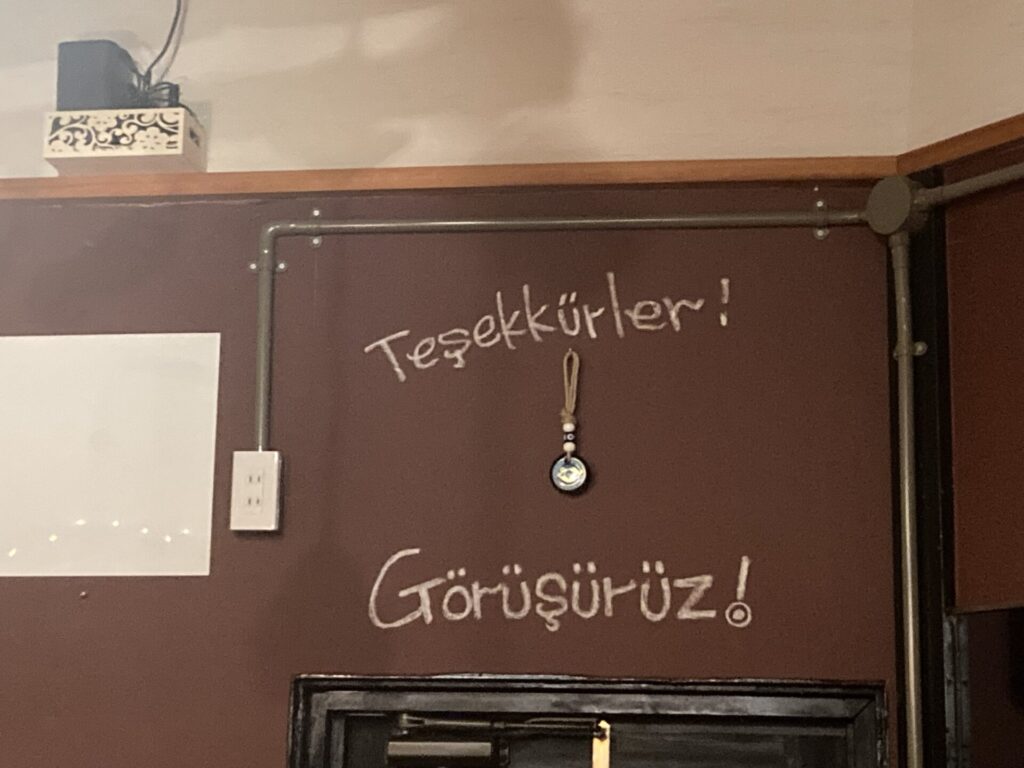 Teşekkürler!
Görüşürüz!